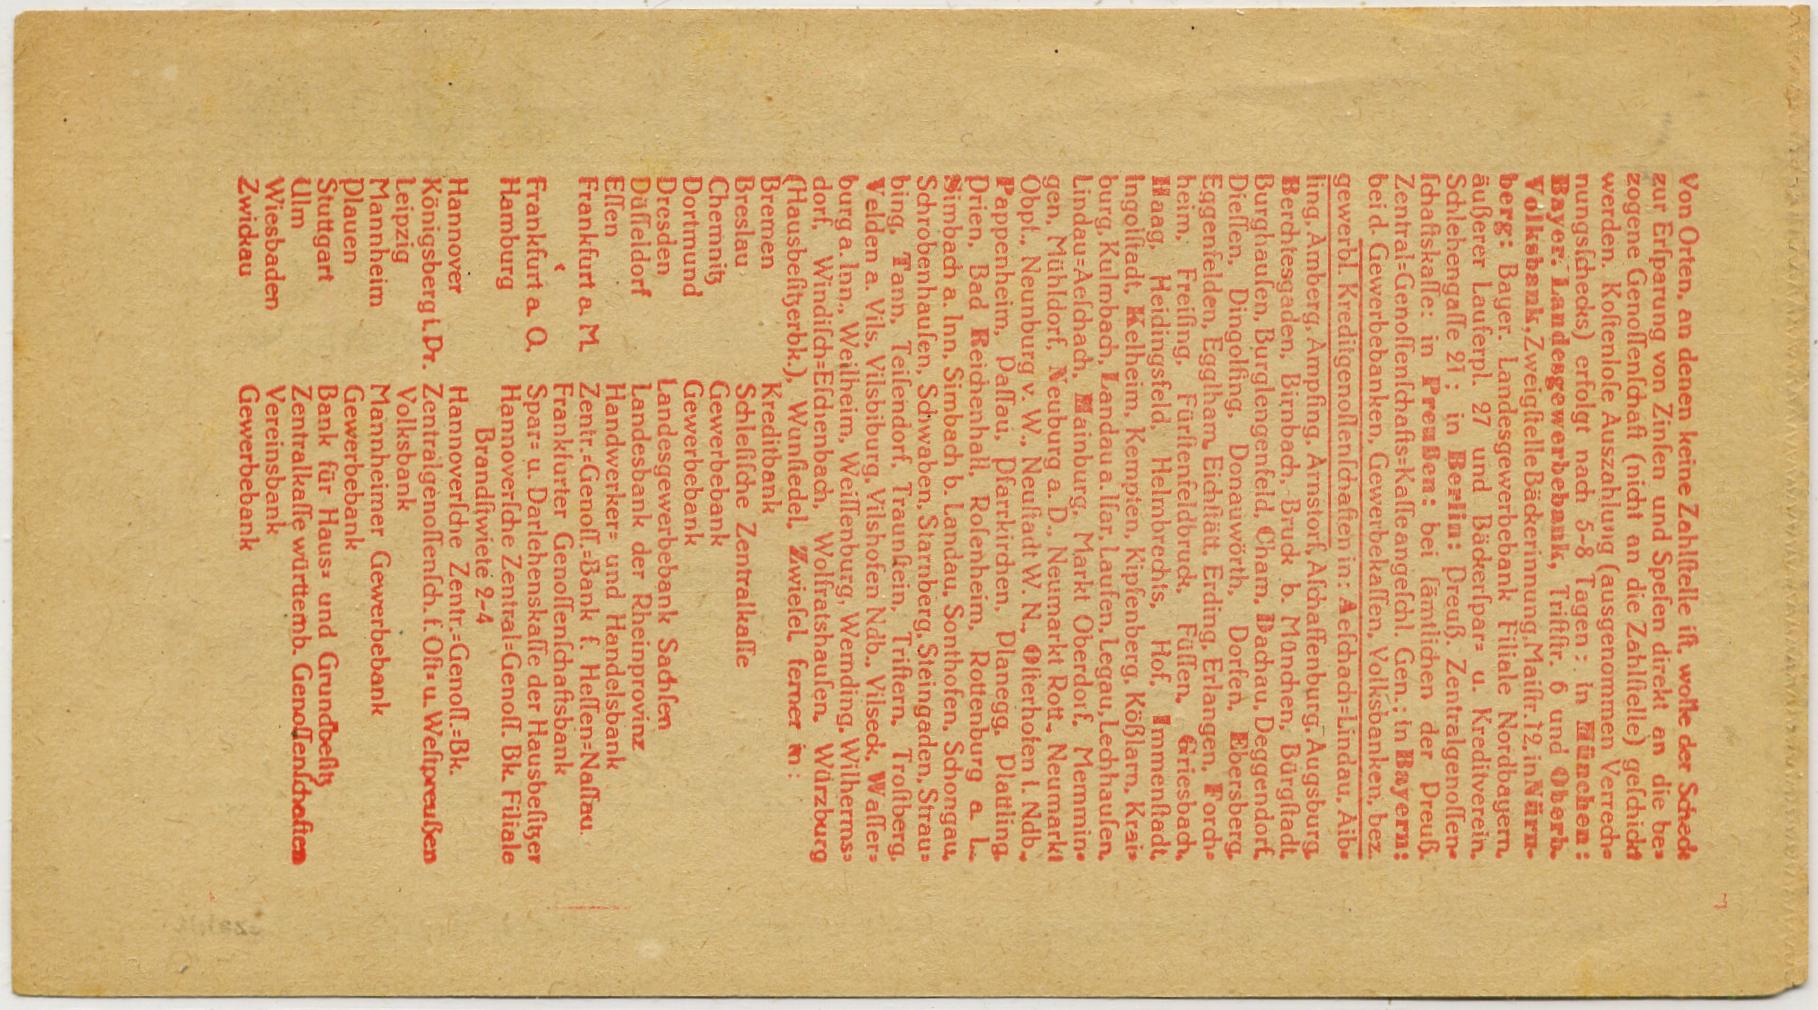 Von Orten, an denen keine Zahlſtelle iſt, wolle der Scheck
zur Erſparung von Zinſen und Speſen direkt an die be=
zogene Genoſſenſchaft (nicht an die Zahlſtelle) geſchickt
werden. Koſtenloſe Auszahlung (ausgenommen Verrech=
nungsſchecks) erfolgt nach 5-8 Tagen: in München:
Bayer. Landesgewerbebank, Triftſtr. 6 und Oberb.
Volksbank, Zweigſtelle Bäckerinnung, Maiſtr. 12, in Nürn=
berg: Bayer. Landesgewerbebank Filiale Nordbayern,
äußerer Lauferpl. 27 und Bäckerſpar= u. Kreditverein,
Schlehengaſſe 21; in Berlin: Preuß. Zentralgenoſſen=
ſchaftskaſſe: in Preußen: bei ſämtlichen der Preuß.
Zentral=Genoſſenſchafts=Kaſſe angeſchl. Gen.; in Bayern:
bei d. Gewerbebanken, Gewerbekaſſen, Volksbanken, bez.
gewerbl. Kreditgenoſſenſchaften in: Aeſchach=Lindau, Aib=
ling, Amberg, Ampfing, Arnstorf, Aſchaffenburg, Augsburg,
Berchtesgaden, Birnbach, Bruck b. München, Bürgſtadt,
Burghauſen, Burglengenfeld, Cham, Dachau, Deggendorf,
Dieſſen, Dingolfing, Donauwörth, Dorfen, Ebersberg,
Eggenfelden, Egglham, Eichſtätt, Erding, Erlangen, Forch=
heim, Freiſing, Fürſtenfeldbruck, Füſſen, Griesbach,
Haag, Heidingsfeld, Helmbrechts, Hof, Immenſtadt,
Ingolſtadt, Kelheim, Kempten, Kipfenberg, Kößlarn, Krai=
burg, Kulmbach, Landau a. Iſar, Laufen, Legau, Lechhauſen,
Lindau=Aeſchach, Mainburg, Markt Oberdorf, Memmin=
gen, Mühldorf, Neuburg a. D., Neumarkt Rott, Neumarkt
Obpf., Neunburg v. W., Neuſtadt W. N., Oſterhofen i. Ndb.,
Pappenheim, Paſſau, Pfarrkirchen, Planegg, Plattling,
Prien, Bad Reichenhall, Roſenheim, Rottenburg a. L.,
Simbach a. Inn, Simbach b. Landau, Sonthofen, Schongau,
Schrobenhauſen, Schwaben, Starnberg, Steingaden, Strau=
bing, Tann, Teiſendorf, Traunſtein, Triftern, Troſtberg,
Velden a. Vils, Vilsbiburg, Vilshofen Ndb., Vilseck, Waſſer=
burg a. Inn, Weilheim, Weiſſenburg, Wemding, Wilherms=
dorf, Windiſch=Eſchenbach, Wolfratshauſen, Würzburg
(Hausbeſitzerbk.), Wunſiedel, Zwieſel, ferner in:
Bremen Kreditbank
Breslau Schleſiſche Zentralkaſſe
Chemnitz Gewerbebank
Dortmund Gewerbebank
Dresden Landesgewerbebank Sachſen
Düſſeldorf Landesbank der Rheinprovinz
Eſſen Handwerker= und Handelsbank
Frankfurt a. M. Zentr.=Genoſſ.=Bank f. Heſſen=Naſſau.
Frankfurter Genoſſenſchaftsbank
Frankfurt a. O. Spar= u. Darlehenskaſſe der Hausbeſitzer
Hamburg Hannoverſche Zentral=Genoſſ. Bk. Filiale
Brandſtwiete 2-4
Hannover Hannoverſche Zentr.=Genoſſ.=Bk.
Königsberg i. Pr. Zentralgenoſſenſch. f. Oſt= u. Weſtpreußen
Leipzig Volksbank
Mannheim Mannheimer Gewerbebank
Plauen Gewerbebank
Stuttgart Bank für Haus= und Grundbeſitz
Ulm Zentralkaſſe württemb. Genoſſenſchaften
Wiesbaden Vereinsbank
Zwickau Gewerbebank